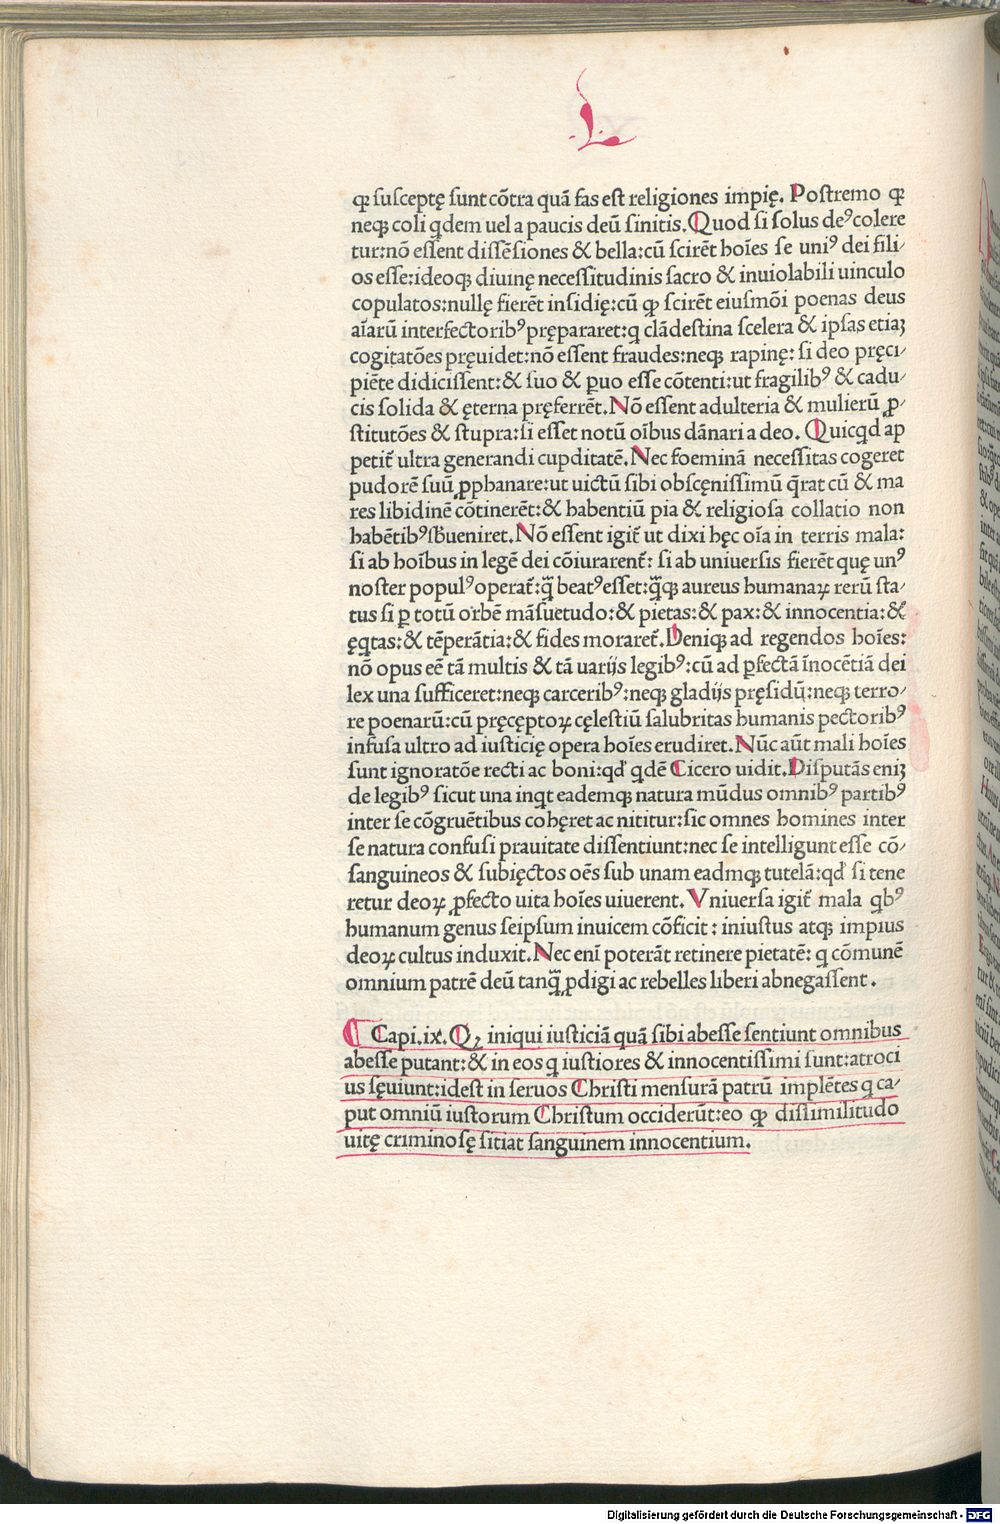 L
ꝙ susceptę sunt cōtra quā fas est religiones impię. Postremo ꝙ
neqꝫ coli qdem uel a paucis deū sinitis. Quod si solus deꝰ colere
tur: nō essent dissēsiones & bella: cū scirēt hoīes se uniꝰ dei fili⸗
os esse: ideoqꝫ diuinę necessitudinis sacro & inuiolabili uinculo
copulatos: nullę fierēt insidię: cū ꝙ scirēt eiusmōi poenas deus
aīarū interfectoribꝰ prępararet: q clādestina scelera & ipsas etiaꝫ
cogitatōes pręuidet: nō essent fraudes: neqꝫ rapinę: si deo pręci⸗
piēte didicissent: & suo & ꝑuo esse cōtenti: ut fragilibꝰ & cadu⸗
cis solida & ęterna pręferrēt. Nō essent adulteria & mulierū ꝓ⸗
stitutōes & stupra: si esset notū oībus dānari a deo. Quicqd ap
petit᷑ ultra generandi cupditatē. Nec foeminā necessitas cogeret
pudorē suū ꝓphanare: ut uictū sibi obscęnissimū q̄rat cū & ma
res libidinē cōtinerēt: & habentiū pia & religiosa collatio non
habētibꝰ sb̄ueniret. Nō essent igit᷑ ut dixi hęc oīa in terris mala:
si ab hoībus in legē dei cōiurarent᷑: si ab uniuersis fierēt quę unꝰ
noster populꝰ operat᷑: q̄ȝ beatꝰ esset: q̄ȝqꝫ aureus humanaꝝ rerū sta⸗
tus si ꝑ totū orbē māsuetudo: & pietas: & pax: & innocentia: &
ęqtas: & tēperātia: & fides moraret᷑. Deniqꝫ ad regendos hoīes:
nō opus eē tā multis & tā uarijs legibꝰ: cū ad ꝑfectā īnocētiā dei
lex una sufficeret: neqꝫ carceribꝰ: neqꝫ gladijs pręsidū: neqꝫ terro⸗
re poenarū: cū pręcęptoꝝ cęlestiū salubritas humanis pectoribꝰ
infusa ultro ad iusticię opera hoīes erudiret. Nūc aūt mali hoīes
sunt ignoratōe recti ac boni: qđ qdē Cicero uidit. Disputās eniꝫ
de legibꝰ sicut una inqt eademqꝫ natura mūdus omnibꝰ partibꝰ
inter se cōgruētibus cohęret ac nititur: sic omnes homines inter
se natura confusi prauitate dissentiunt: nec se intelligunt esse cō⸗
sanguineos & subięctos oēs sub unam eadmqꝫ tutelā: qđ si tene
retur deoꝝ ꝓfecto uita hoīes uiuerent. Vniuersa igit᷑ mala qbꝰ
humanum genus seipsum inuicem cōficit: iniustus atqꝫ impius
deoꝝ cultus induxit. Nec enī poterāt retinere pietatē: q cōmunē
omnium patrē deū tanq̄ȝ ꝓdigi ac rebelles liberi abnegassent.
¶ Capi. ix. Qꝫ iniqui iusticiā quā sibi abesse sentiunt omnibus
abesse putant: & in eos q iustiores & innocentissimi sunt: atroci
us sęuiunt: idest in seruos Christi mensurā patrū implētes q ca⸗
put omniū iustorum Christum occiderūt: eo ꝙ dissimilitudo
uitę criminosę sitiat sanguinem innocentium.
Digitalisierung gefördert durch die Deutsche Forschungsgemeinschaft - DFG